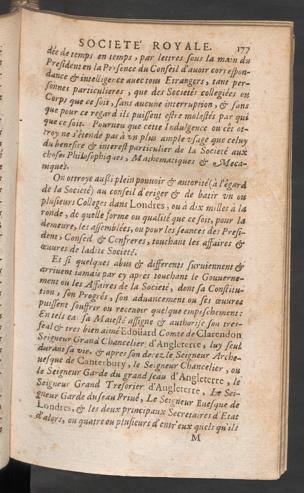 SOCIETE' ROYALE. 177
dée de temps en temps, par lettres sous la main du
President en la Presence du Conseil d'auoir correspon-
dance & intelligence auec tous Estrangers, tant per-
sonnes particulieres, que des Societés collegiées en
Corps que ce soit, sans aucune interruption, & sans
que pour ce regard ils puissent estre molestés par qui
que ce soit. Pourueu que cette Indulgence ou cét oc-
troy ne s'étende pas à vn plus ample vsage que celuy
du benefice & interest particulier de la Societé aux
choses Philosophiques, Mathematiques & Meca-
niques.
On ottroye aussi plein pouuoir & autorité (à l'égard
de la Societé) au conseil d'eriger & de batir vn ou
plusieurs Colleges dans Londres, ou à dix milles à la
ronde, de quelle forme ou qualité que ce soit, pour la
demeure, les assemblées, ou pour les seances des Presi-
dens, Conseil & Confreres, touchant les affaires &
œuures de ladite Societé.
Et si quelques abus & differents suruiennent &
arriuent iamais par cy apres touchant le Gouuerne-
ment ou les Affaires de la Societé, dont sa Constitu-
tion, son Progrés, son aduancement ou ses œuures
puissent souffrir ou receuoir quelque empeschement:
En tels cas sa Maiesté assigne & authorise son tres-
feal & tres bien aimé Edoüard Comte de Clarendon
Seigneur Grand Chancelier d'Angleterre, luy seul
durant sa vie, & apres son decez le Seigneur Arche-
uesque de Canterbury, le Seigneur Chancelier, ou
le Seigneur Garde du grand seau d'Angleterre, le
Seigneur Grand Tresorier d'Angleterre, Le Sei-
gneur Garde du seau Priué, Le Seigneur Euesque de
Londres, & les deux principaux Secretaires d'Etat
d'alors, ou quatre ou plusieurs d'entr'eux quels qu'ils
M